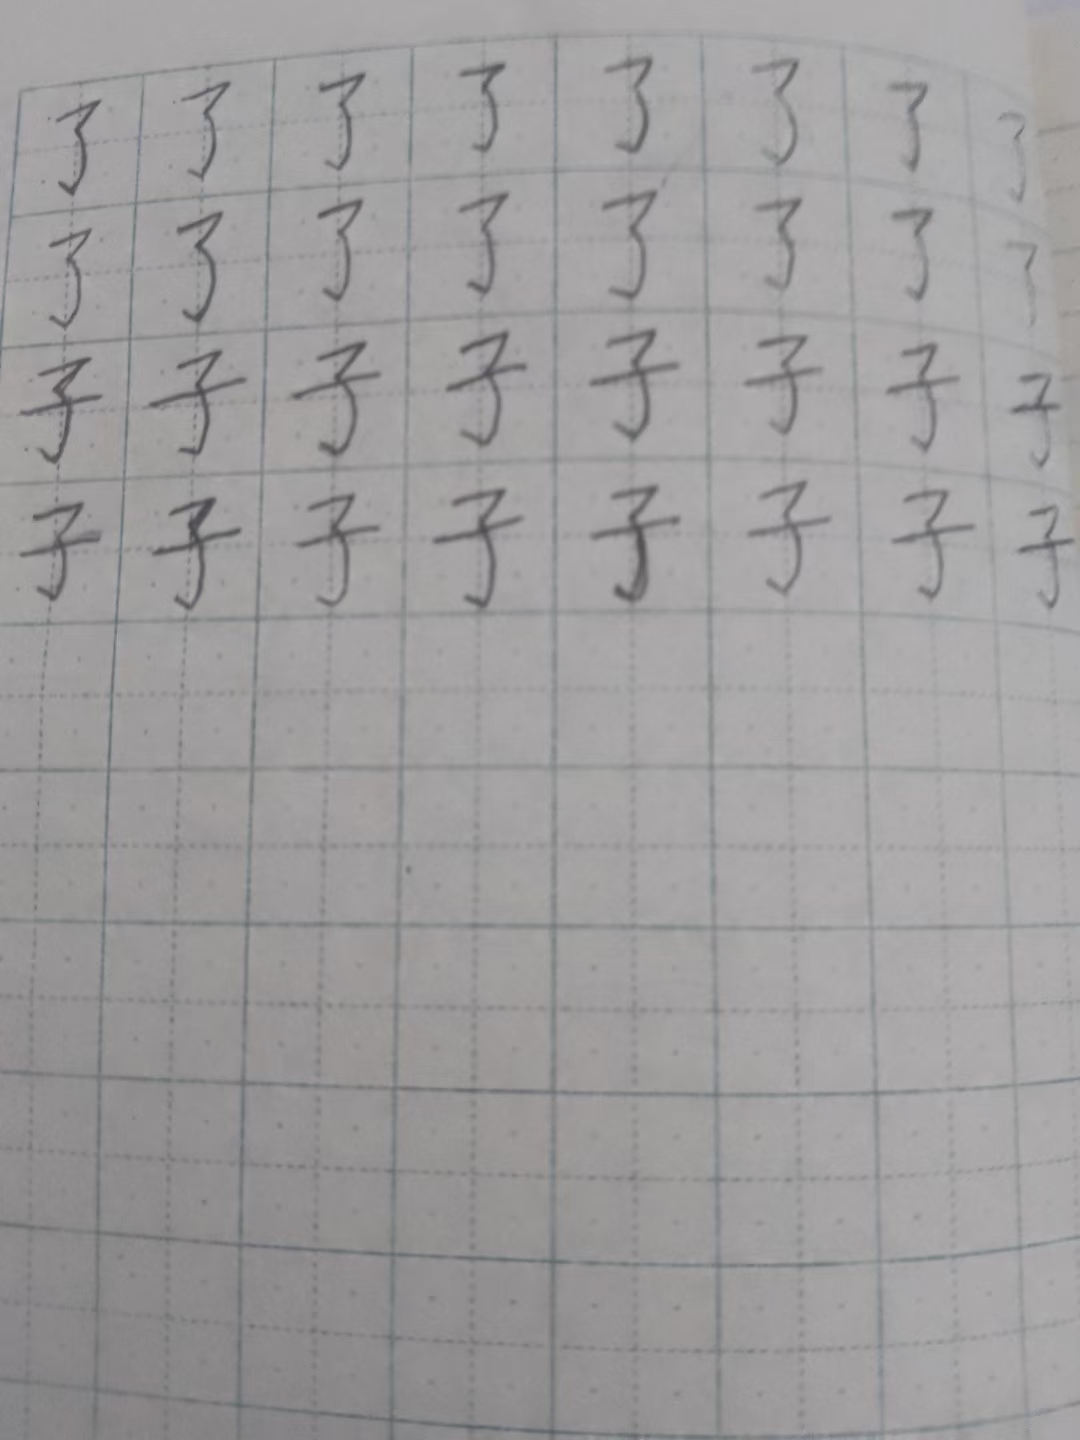 了了了了了了了了
了了了了了了了了
子子子子子子子子
子子子子子子子子